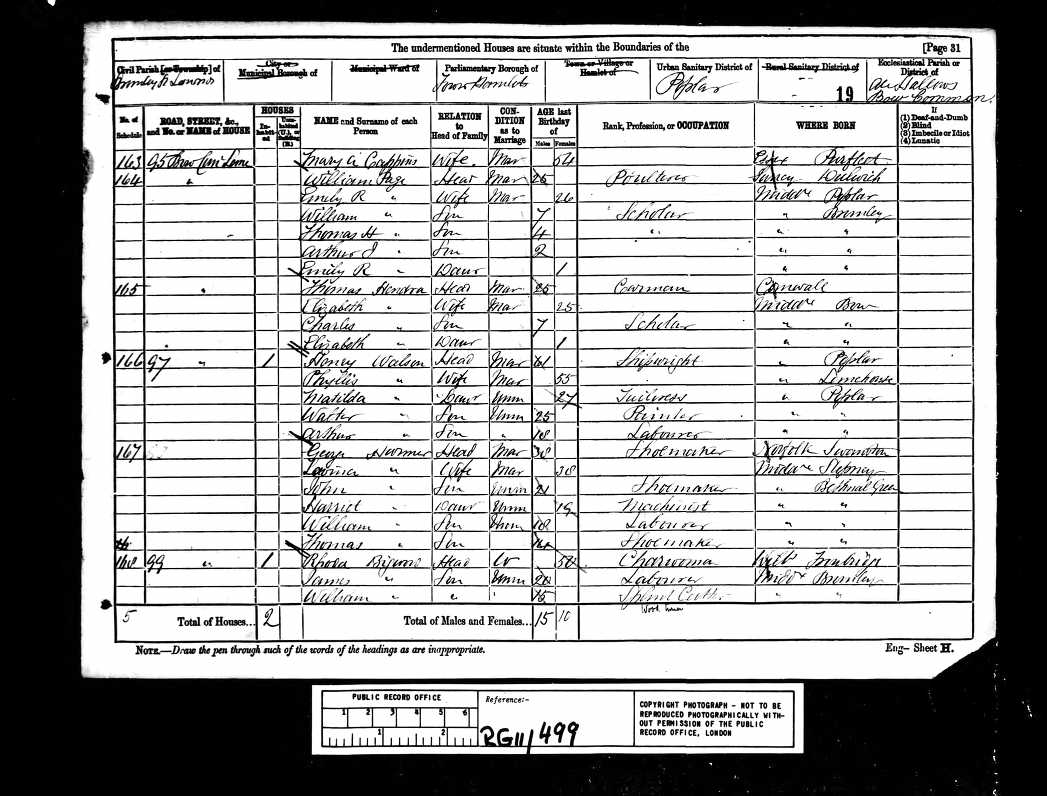 The undermentioned Houses are situate within the Boundaries of the [Page 31
Civil Parish [or Township] of
City or Municipal Borough of
Municipal Ward of
Parliamentary Borough of
Tower Hamlets
Town or Village or Hamlet of
Urban Sanitary District of
Poplar
Rural Sanitary District of
19
Ecclesiastical Parish or District of
All Hallows
Bow Common
No. of Schedule
ROAD, STREET, &c., and No. or NAME of HOUSE
HOUSES
In-habit-ed
Unin-habited (U.), or Building (B.)
NAME and Surname of each Person
RELATION to Head of Family
CON-DITION as to Marriage
AGE last Birthday of
Males Females
Rank, Profession, or OCCUPATION
WHERE BORN
If
(1) Deaf-and-Dumb
(2) Blind
(3) Imbecile or Idiot
(4) Lunatic
163 95 Bow Lane Mary A Wife Mar 54 Essex Purfleet
164 " William Page Head Mar 26 Poulterer Surrey Dulwich
Emily R " Wife Mar 26 Middx Poplar
William " Son 7 Scholar " Bromley
Thomas H " Son 4 " " "
Arthur J " Son 2 " "
Emily R " Daur 1 " "
165 " Thomas Hendra Head Mar 25 Carman Cornwall
Elizabeth " Wife Mar 25 Middx Bow
Charles " Son 7 Scholar " "
Elizabeth " Daur 1 " "
166 97 " 1 Henry Watson Head Mar 61 Shipwright " Poplar
Phyllis " Wife Mar 55 " Limehouse
Matilda " Daur Unm 27 " Poplar
Walter " Son Unm 25 " "
Arthur " Son " 18 Labourer " "
167 George Head Mar 38 Shoemaker Norfolk
" Wife Mar 38 Middx Stepney
John " Son Unm 21 Shoemaker " Bethnal Green
Harriet " Daur Unm 19 Machinist " "
William " Son Unm 18 Labourer " "
Thomas " Son 14 Shoemaker " "
168 99 " 1 Rhoda Head W 50 Charwoman Wilts
James " Son Unm 20 Labourer Middx Bromley
William " " " 15 Cutter " "
Wood
5 Total of Houses... 2 Total of Males and Females... 15 10
NOTE.—Draw the pen through such of the words of the headings as are inappropriate. Eng- Sheet H.
PUBLIC RECORD OFFICE
1 2 3 4 5 6
1 2
Reference:-
RG11/499
COPYRIGHT PHOTOGRAPH - NOT TO BE
REPRODUCED PHOTOGRAPHICALLY WITH-
OUT PERMISSION OF THE PUBLIC
RECORD OFFICE, LONDON